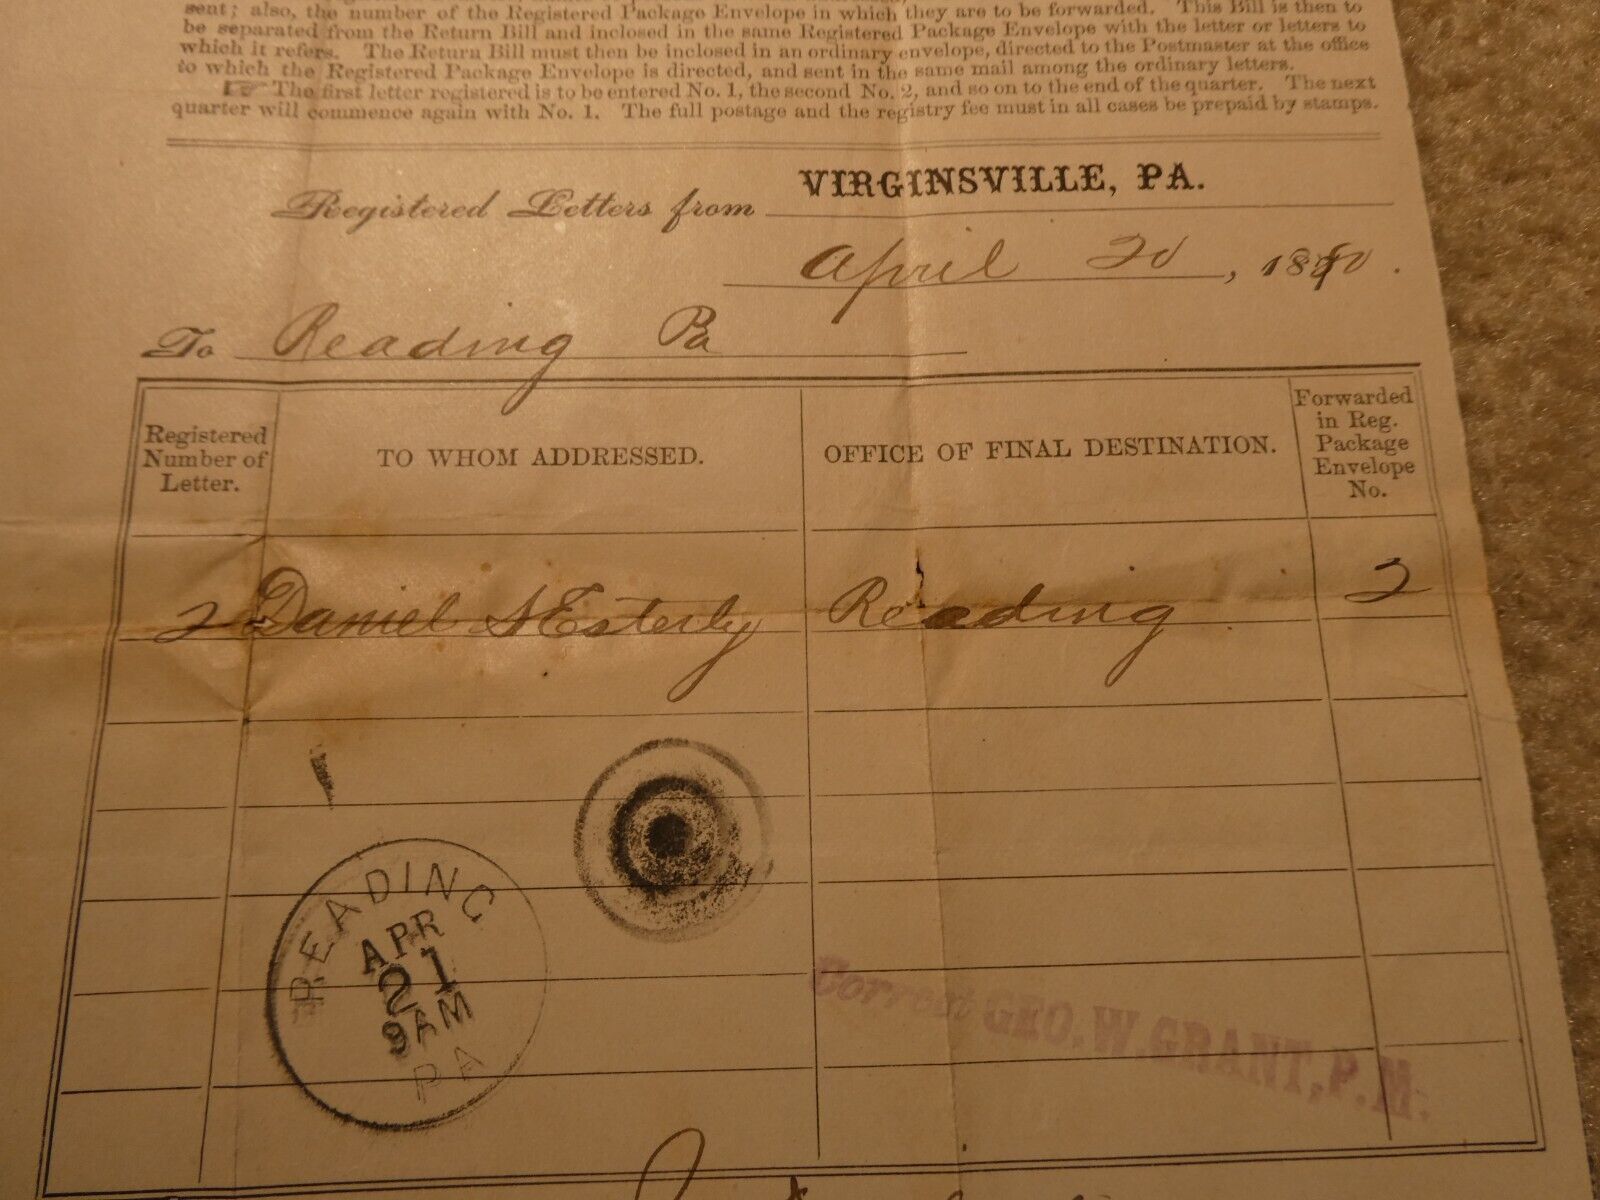 sent; also, the number of the Registered Package Envelope in which they are to be forwarded. This Bill is then to
be separated from the Return Bill and inclosed in the same Registered Package Envelope with the letter or letters to
which it refers. The Return Bill must then be inclosed in an ordinary envelope, directed to the Postmaster at the office
to which the Registered Package Envelope is directed, and sent in the same mail among the ordinary letters.
☞ The first letter registered is to be entered No. 1, the second No. 2, and so on to the end of the quarter. The next
quarter will commence again with No. 1. The full postage and the registry fee must in all cases be prepaid by stamps.
Registered Letters from VIRGINSVILLE, PA.
April 20, 18
To Reading Pa
Registered Number of Letter.
TO WHOM ADDRESSED.
OFFICE OF FINAL DESTINATION.
Forwarded in Reg. Package Envelope No.
2 Daniel S Esterly Reading 2
READING
APR
21
9AM
PA
Correct GEO. W. GRANT, P. M.